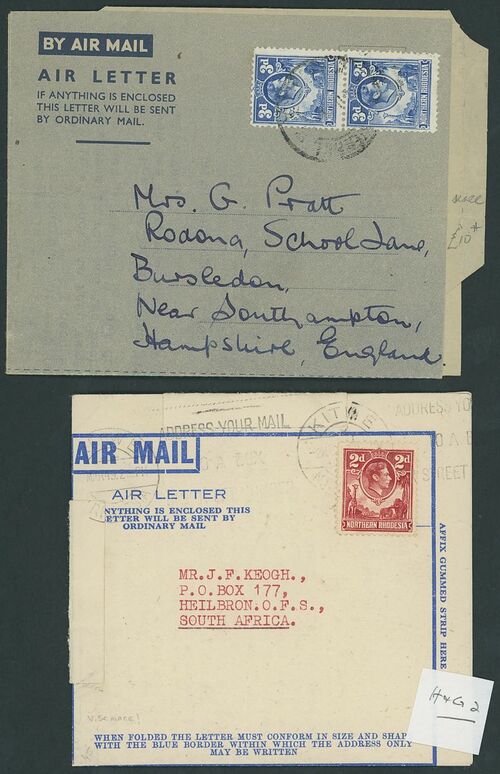 BY AIR MAIL
AIR LETTER
IF ANYTHING IS ENCLOSED
THIS LETTER WILL BE SENT
BY ORDINARY MAIL.
3d 3d
NORTHERN RHODESIA
3d 3d
NORTHERN RHODESIA
Mrs. G. Pratt
Rodona, School Lane,
Bursledon,
Near Southampton,
Hampshire, England
£10
ADDRESS YOUR MAIL
BOX
KITWE
ADDRESS YO
STREET
AIR MAIL
AIR LETTER
ANYTHING IS ENCLOSED THIS
LETTER WILL BE SENT BY
ORDINARY MAIL
2d 2d
NORTHERN RHODESIA
MR.J.F.KEOGH.,
P.O.BOX 177,
HEILBRON.O.F.S.,
SOUTH AFRICA.
AFFIX GUMMED STRIP HERE
H&G 2
V. Scarce!
WHEN FOLDED THE LETTER MUST CONFORM IN SIZE AND SHAP
WITH THE BLUE BORDER WITHIN WHICH THE ADDRESS ONLY
MAY BE WRITTEN